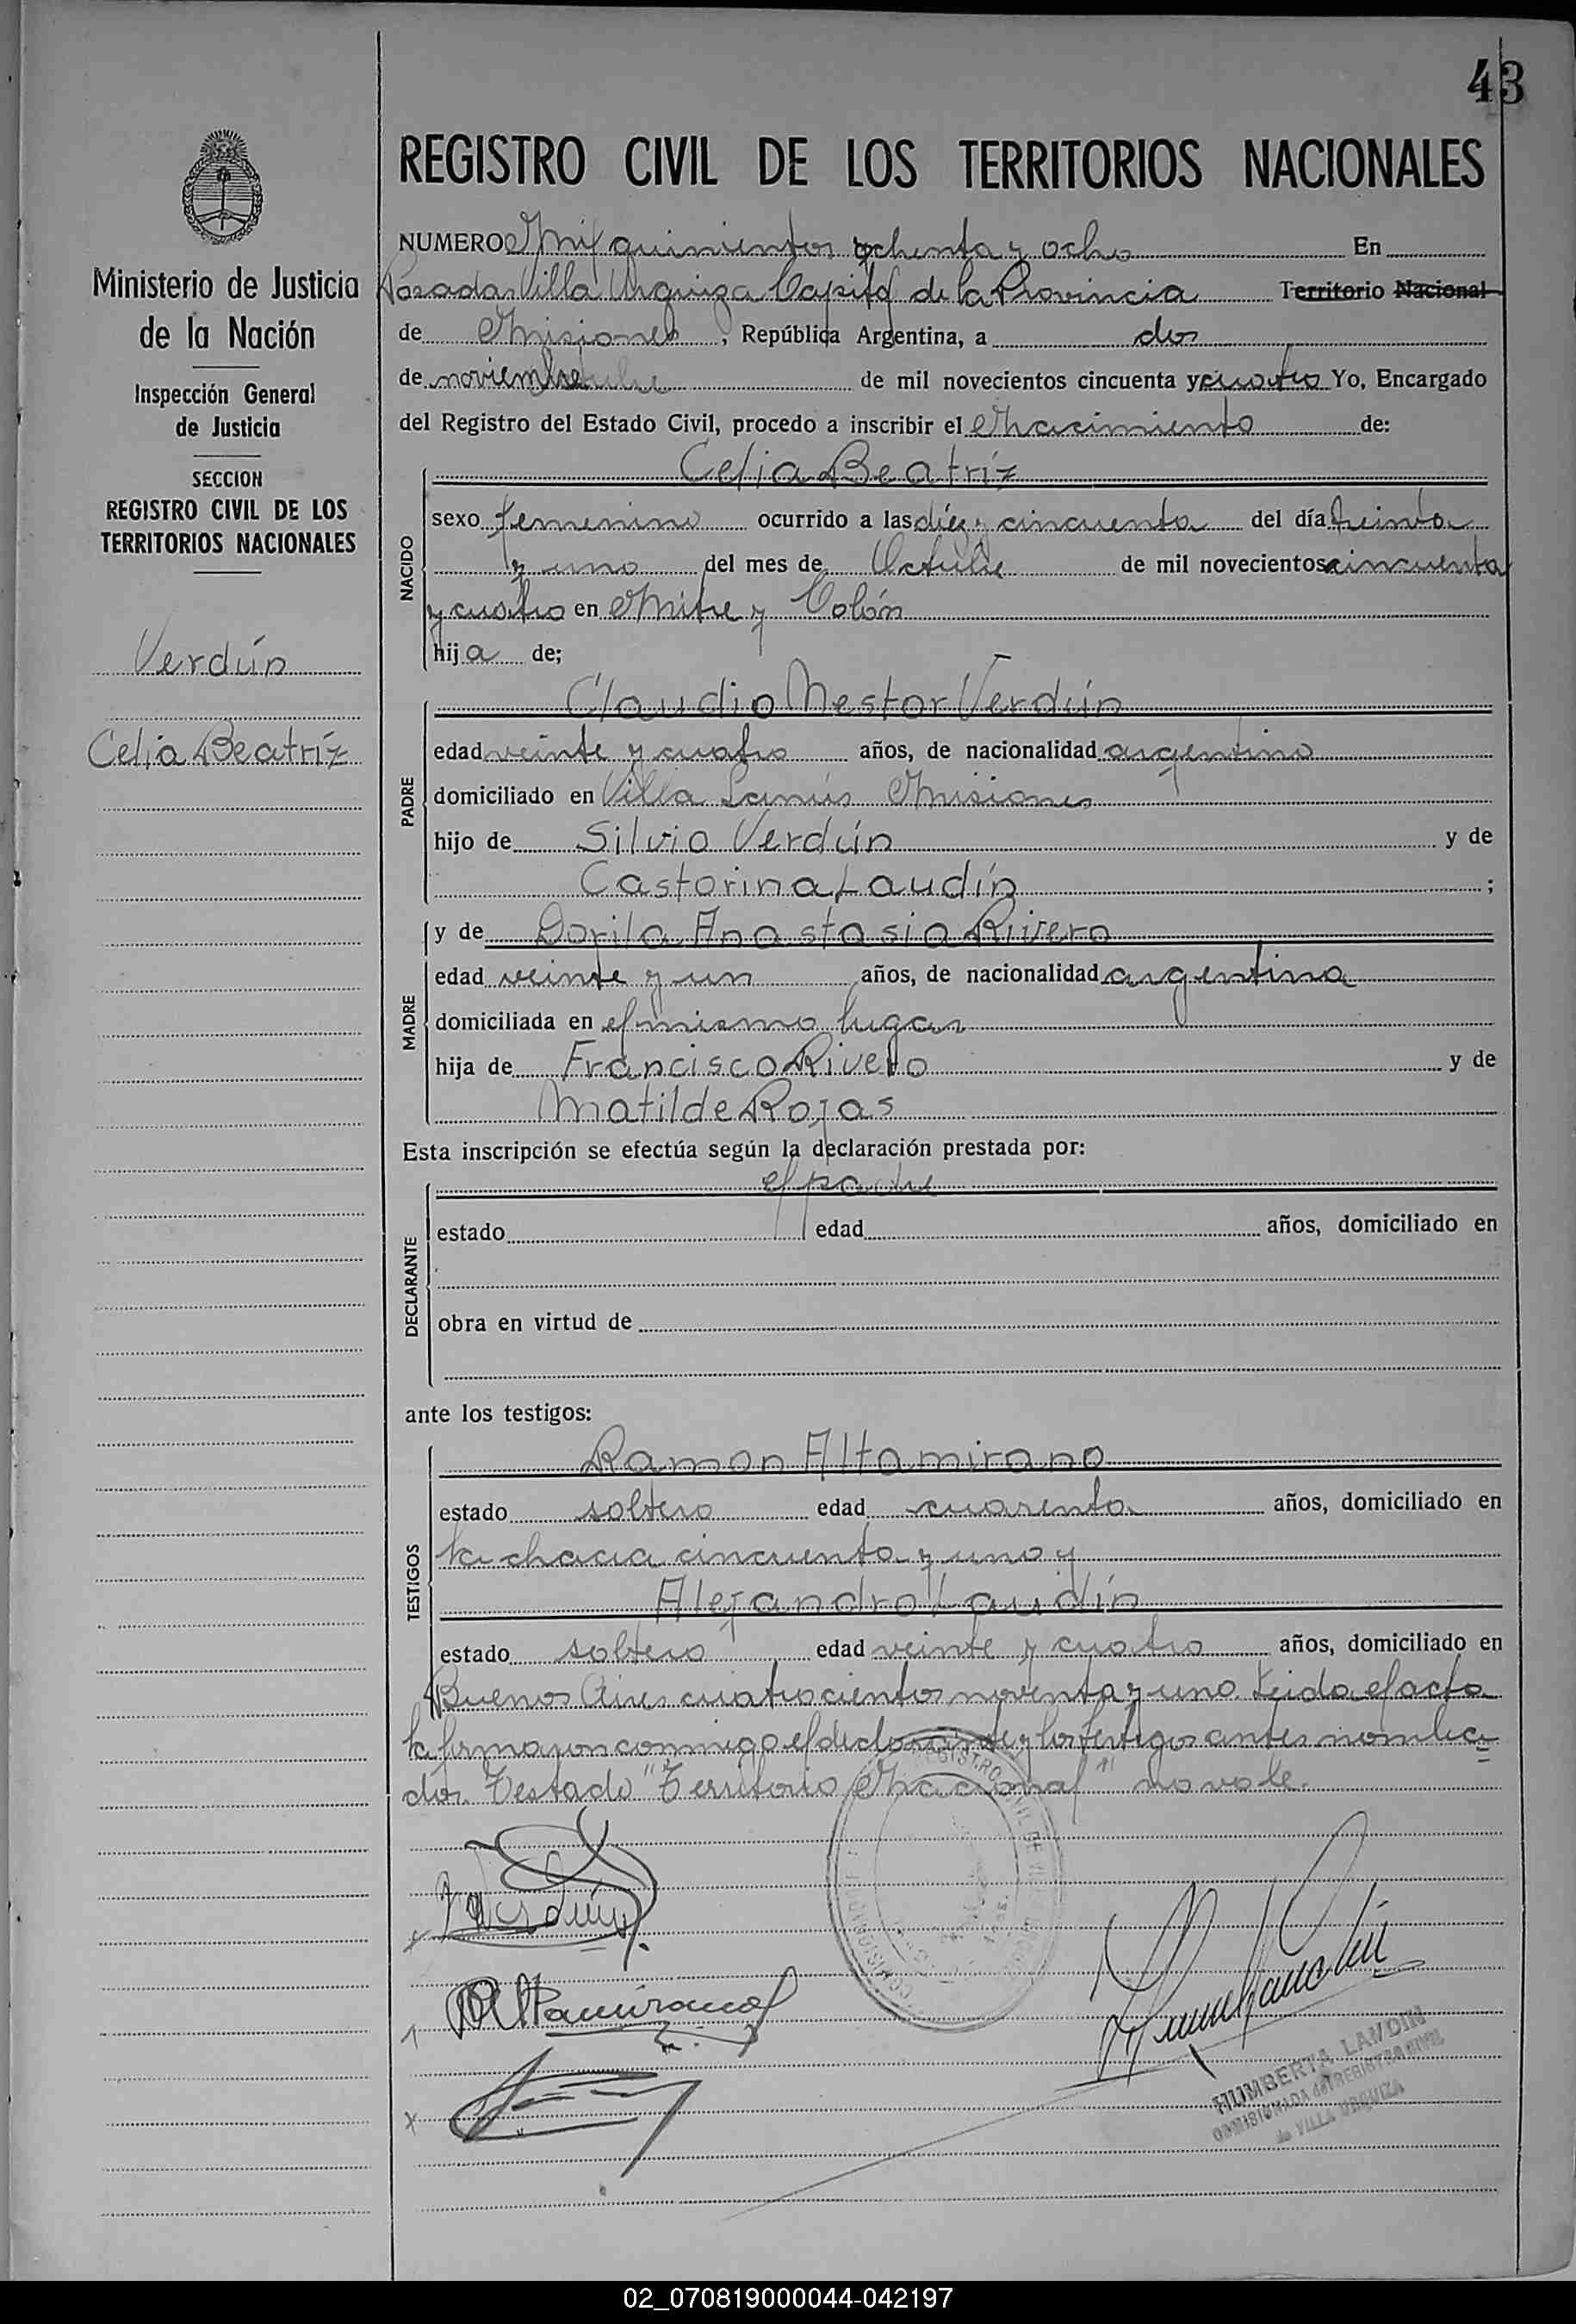 43
REGISTRO CIVIL DE LOS TERRITORIOS NACIONALES
Ministerio de Justicia
de la Nación
Inspección General
de Justicia
SECCION
REGISTRO CIVIL DE LOS
TERRITORIOS NACIONALES
Verdún
Celia Beatríz
NUMERO Mil quinientos ochenta y ocho En
Posadas Villa Urquiza Capital de la Provincia Territorio Nacional
de Misiones, República Argentina, a dos
de noviembre de mil novecientos cincuenta y cuatro Yo, Encargado
del Registro del Estado Civil, procedo a inscribir el Nacimiento de:
NACIDO
Celia Beatríz
sexo femenino ocurrido a las diéz y cincuenta del día treinta
y uno del mes de Octubre de mil novecientos cincuenta
y cuatro en Mitre y Colón
hija de;
PADRE
Claudio Nestor Verdún
edad veinte y cuatro años, de nacionalidad argentino
domiciliado en Villa Lanús Misiones
hijo de Silvio Verdún y de
Castorina Laudín ;
MADRE
y de Dorila Anastasia Rivero
edad veinte y un años, de nacionalidad argentina
domiciliada en el mismo lugar
hija de Francisco Rivero y de
Matilde Rojas
Esta inscripción se efectúa según la declaración prestada por:
DECLARANTE
el padre
estado edad años, domiciliado en
obra en virtud de
ante los testigos:
TESTIGOS
Ramon Altamirano
estado soltero edad cuarenta años, domiciliado en
la chacra cincuenta y uno y
Alejandro Laudín
estado soltero edad veinte y cuatro años, domiciliado en
Buenos Aires cuatrocientos noventa y uno. Leida el acta
la firmaron conmigo el declarante y los testigos antes nombra=
dos. Testado "Territorio Nacional" no vale.
Verdún
RAltamirano
HUMBERTA LAUDIN
COMISIONADA del REGISTRO CIVIL
de VILLA URQUIZA
02_070819000044-042197